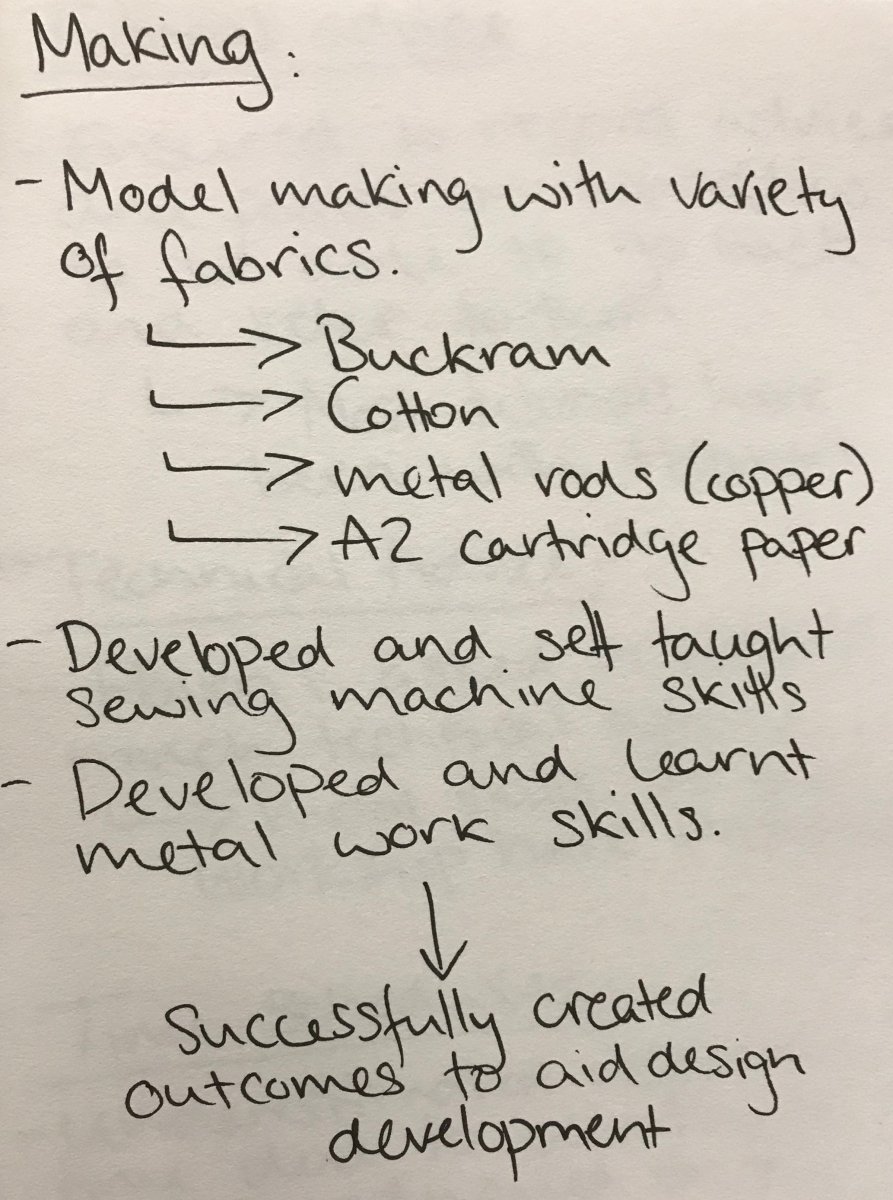 Making:
- Model making with variety
of fabrics.
→ Buckram
→ Cotton
→ metal rods (copper)
→ A2 cartridge paper
- Developed and self taught
sewing machine skills
- Developed and learnt
metal work skills.
↓
Successfully created
outcomes to aid design
development